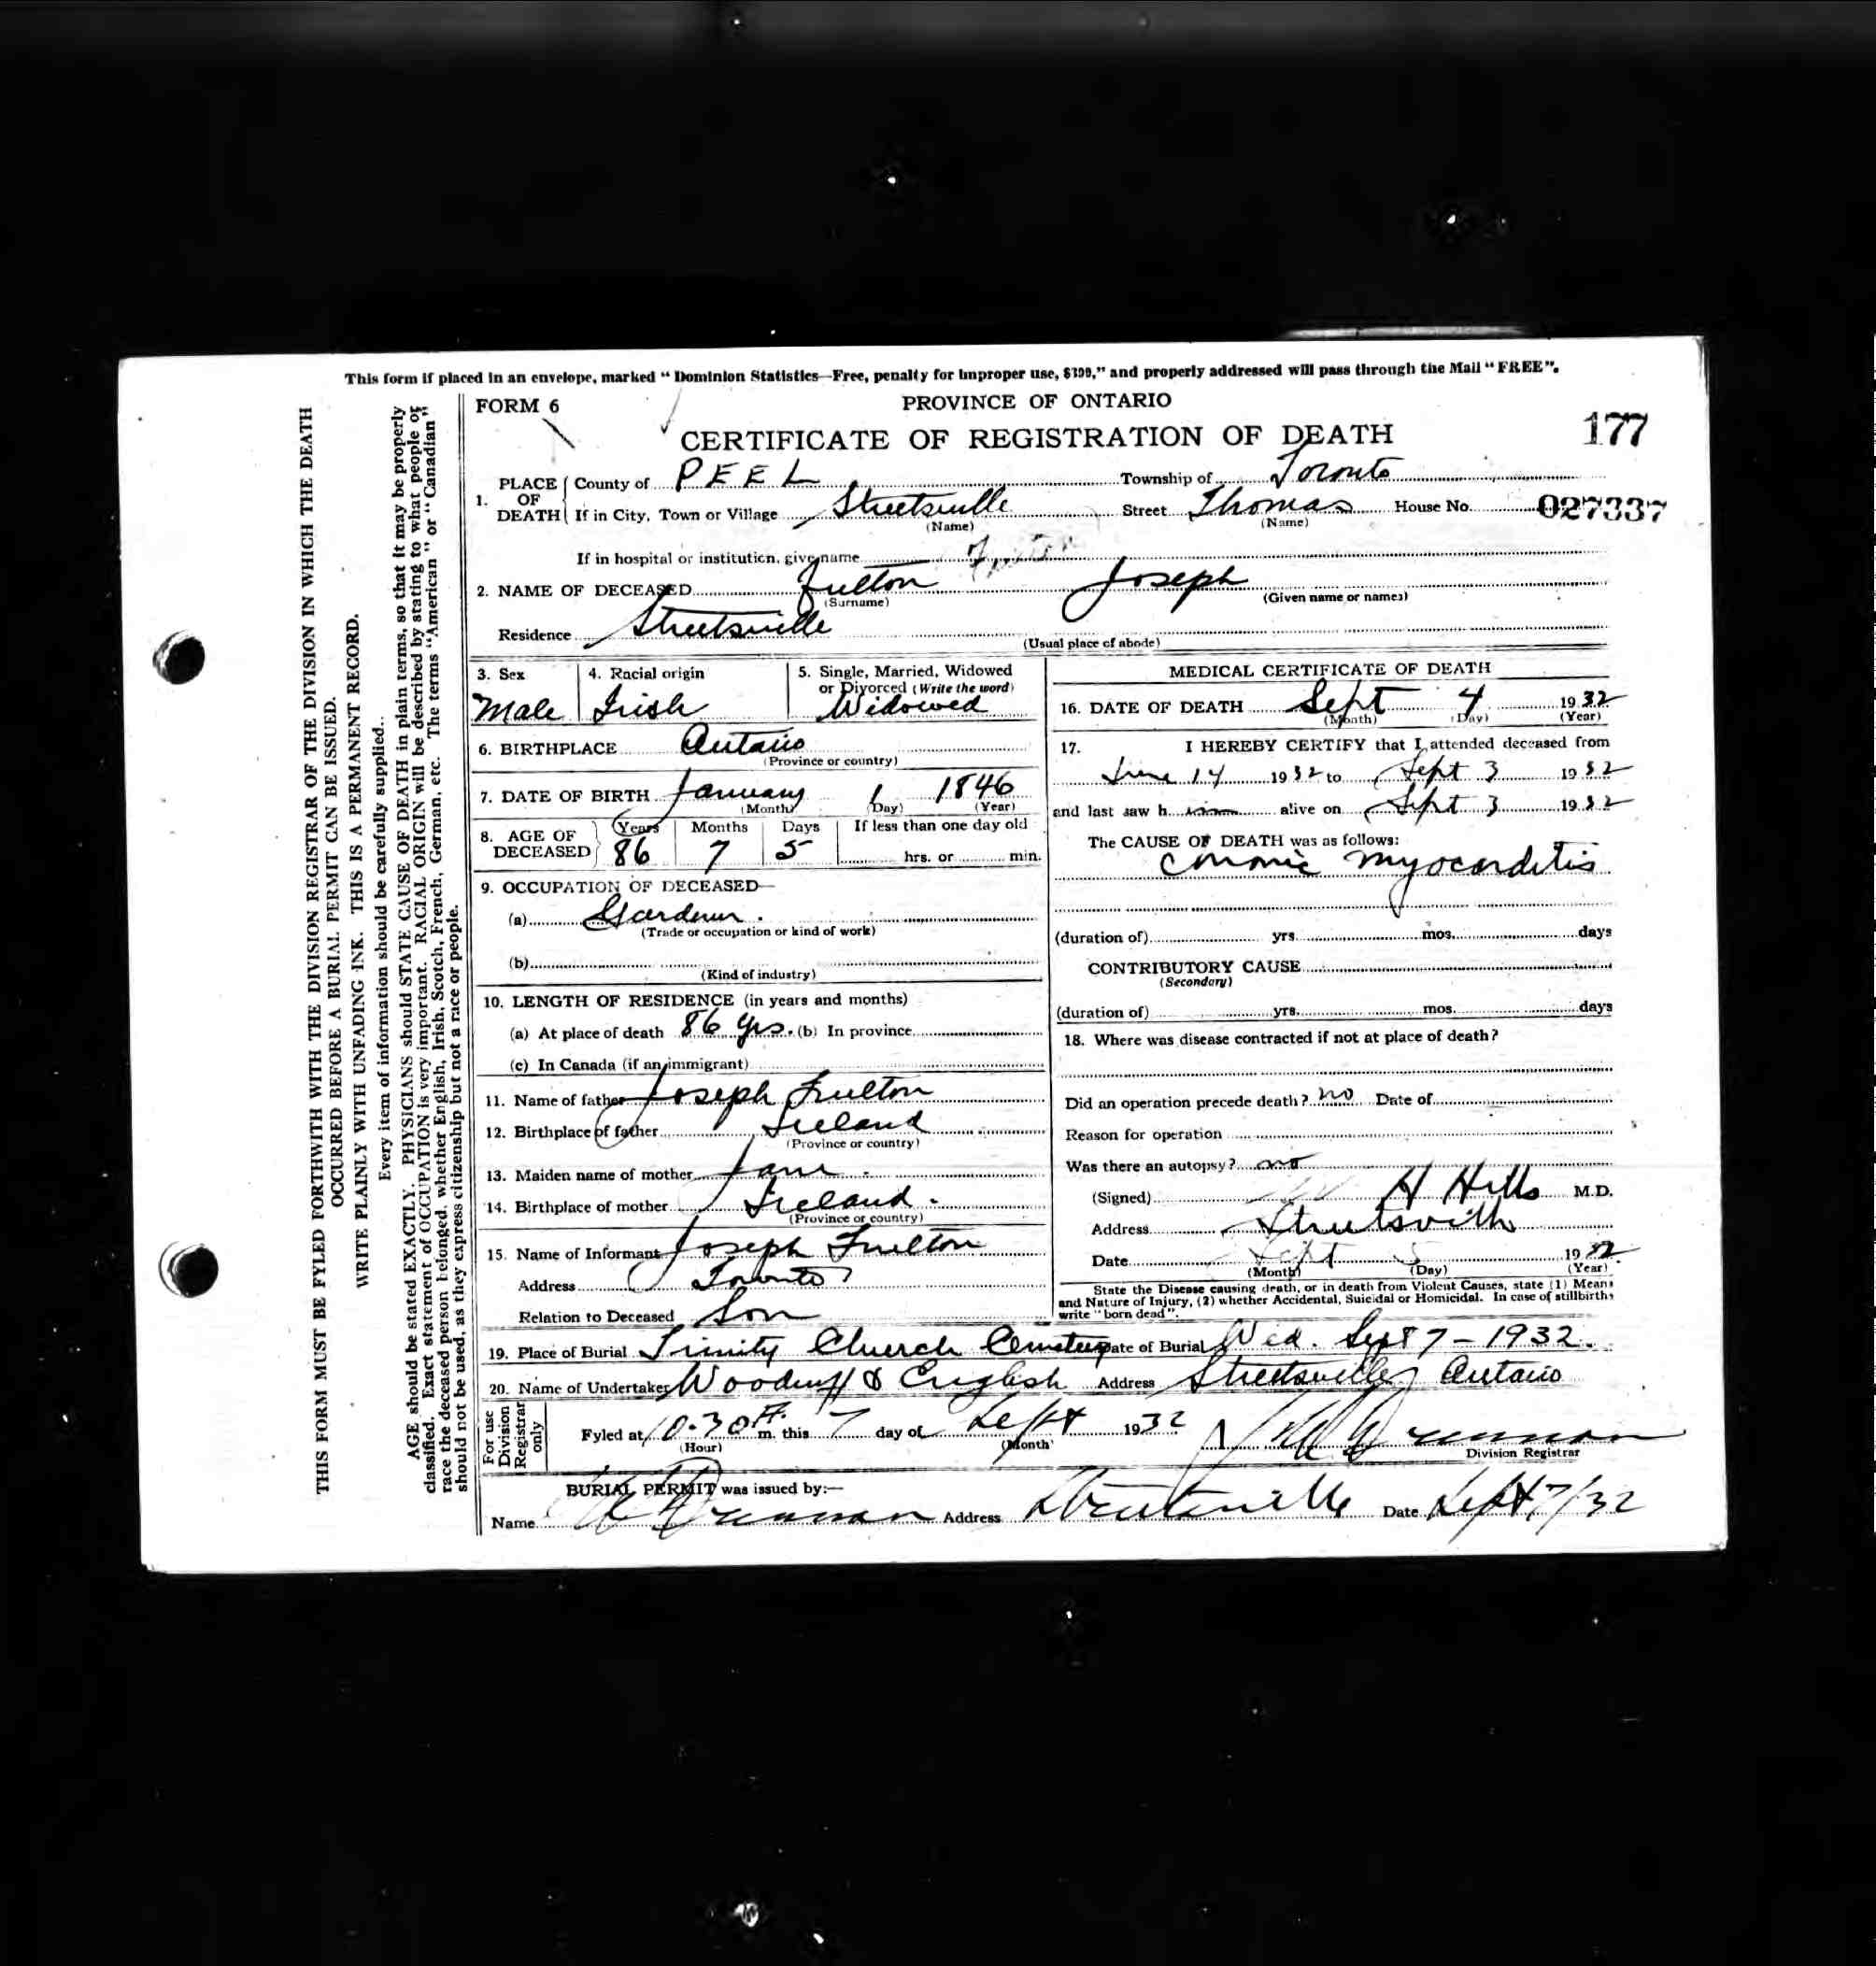 This form if placed in an envelope, marked “Dominion Statistics—Free, penalty for improper use, $300,” and properly addressed will pass through the Mail “FREE”.
THIS FORM MUST BE FYLED FORTHWITH WITH THE DIVISION REGISTRAR OF THE DIVISION IN WHICH THE DEATH
OCCURRED BEFORE A BURIAL PERMIT CAN BE ISSUED.
WRITE PLAINLY WITH UNFADING INK. THIS IS A PERMANENT RECORD.
Every item of information should be carefully supplied.
AGE should be stated EXACTLY. PHYSICIANS should STATE CAUSE OF DEATH in plain terms, so that it may be properly
classified. Exact statement of OCCUPATION is very important. RACIAL ORIGIN will be described by stating to what people or
race the deceased person belonged, whether English, Irish, Scotch, French, German, etc. The terms “American” or “Canadian”
should not be used, as they express citizenship but not a race or people.
FORM 6
PROVINCE OF ONTARIO
177
CERTIFICATE OF REGISTRATION OF DEATH
1. PLACE OF DEATH County of PEEL Township of Toronto
If in City, Town or Village Streetsville Street Thomas House No. 027337
(Name) (Name)
If in hospital or institution, give name
2. NAME OF DECEASED Fulton Joseph
(Surname) (Given name or names)
Residence Streetsville
(Usual place of abode)
3. Sex 4. Racial origin 5. Single, Married, Widowed
or Divorced (Write the word)
Male Irish Widowed
6. BIRTHPLACE Ontario
(Province or country)
7. DATE OF BIRTH January 1 1846
(Month) (Day) (Year)
8. AGE OF DECEASED Years Months Days If less than one day old
86 7 5 hrs. or min.
9. OCCUPATION OF DECEASED—
(a) Gardener.
(Trade or occupation or kind of work)
(b)
(Kind of industry)
10. LENGTH OF RESIDENCE (in years and months)
(a) At place of death 86 yrs. (b) In province
(c) In Canada (if an immigrant)
11. Name of father Joseph Fulton
12. Birthplace of father Ireland
(Province or country)
13. Maiden name of mother Jane
14. Birthplace of mother Ireland
(Province or country)
15. Name of Informant Joseph Fulton
Address Toronto
Relation to Deceased Son
MEDICAL CERTIFICATE OF DEATH
16. DATE OF DEATH Sept 4 1932
(Month) (Day) (Year)
17. I HEREBY CERTIFY that I attended deceased from
June 14 1932 to Sept 3 1932
and last saw him alive on Sept 3 1932
The CAUSE OF DEATH was as follows:
Chronic myocarditis
(duration of) yrs. mos. days
CONTRIBUTORY CAUSE
(Secondary)
(duration of) yrs. mos. days
18. Where was disease contracted if not at place of death?
Did an operation precede death? no Date of
Reason for operation
Was there an autopsy? no
(Signed) H Hills M.D.
Address Streetsville
Date Sept 5 1932
(Month) (Day) (Year)
State the Disease causing death, or in death from Violent Causes, state (1) Means
and Nature of Injury, (2) whether Accidental, Suicidal or Homicidal. In case of stillbirths
write “born dead”.
19. Place of Burial Trinity Church Cemetery Date of Burial Wed. Sept 7 - 1932.
20. Name of Undertaker Woodruff & English Address Streetsville, Ontario
For use
Division
Registrar
only
Fyled at 10.30 A. m. this 7 day of Sept 1932
(Hour) (Month) Division Registrar
BURIAL PERMIT was issued by:—
Name Address Streetsville Date Sept 7/32